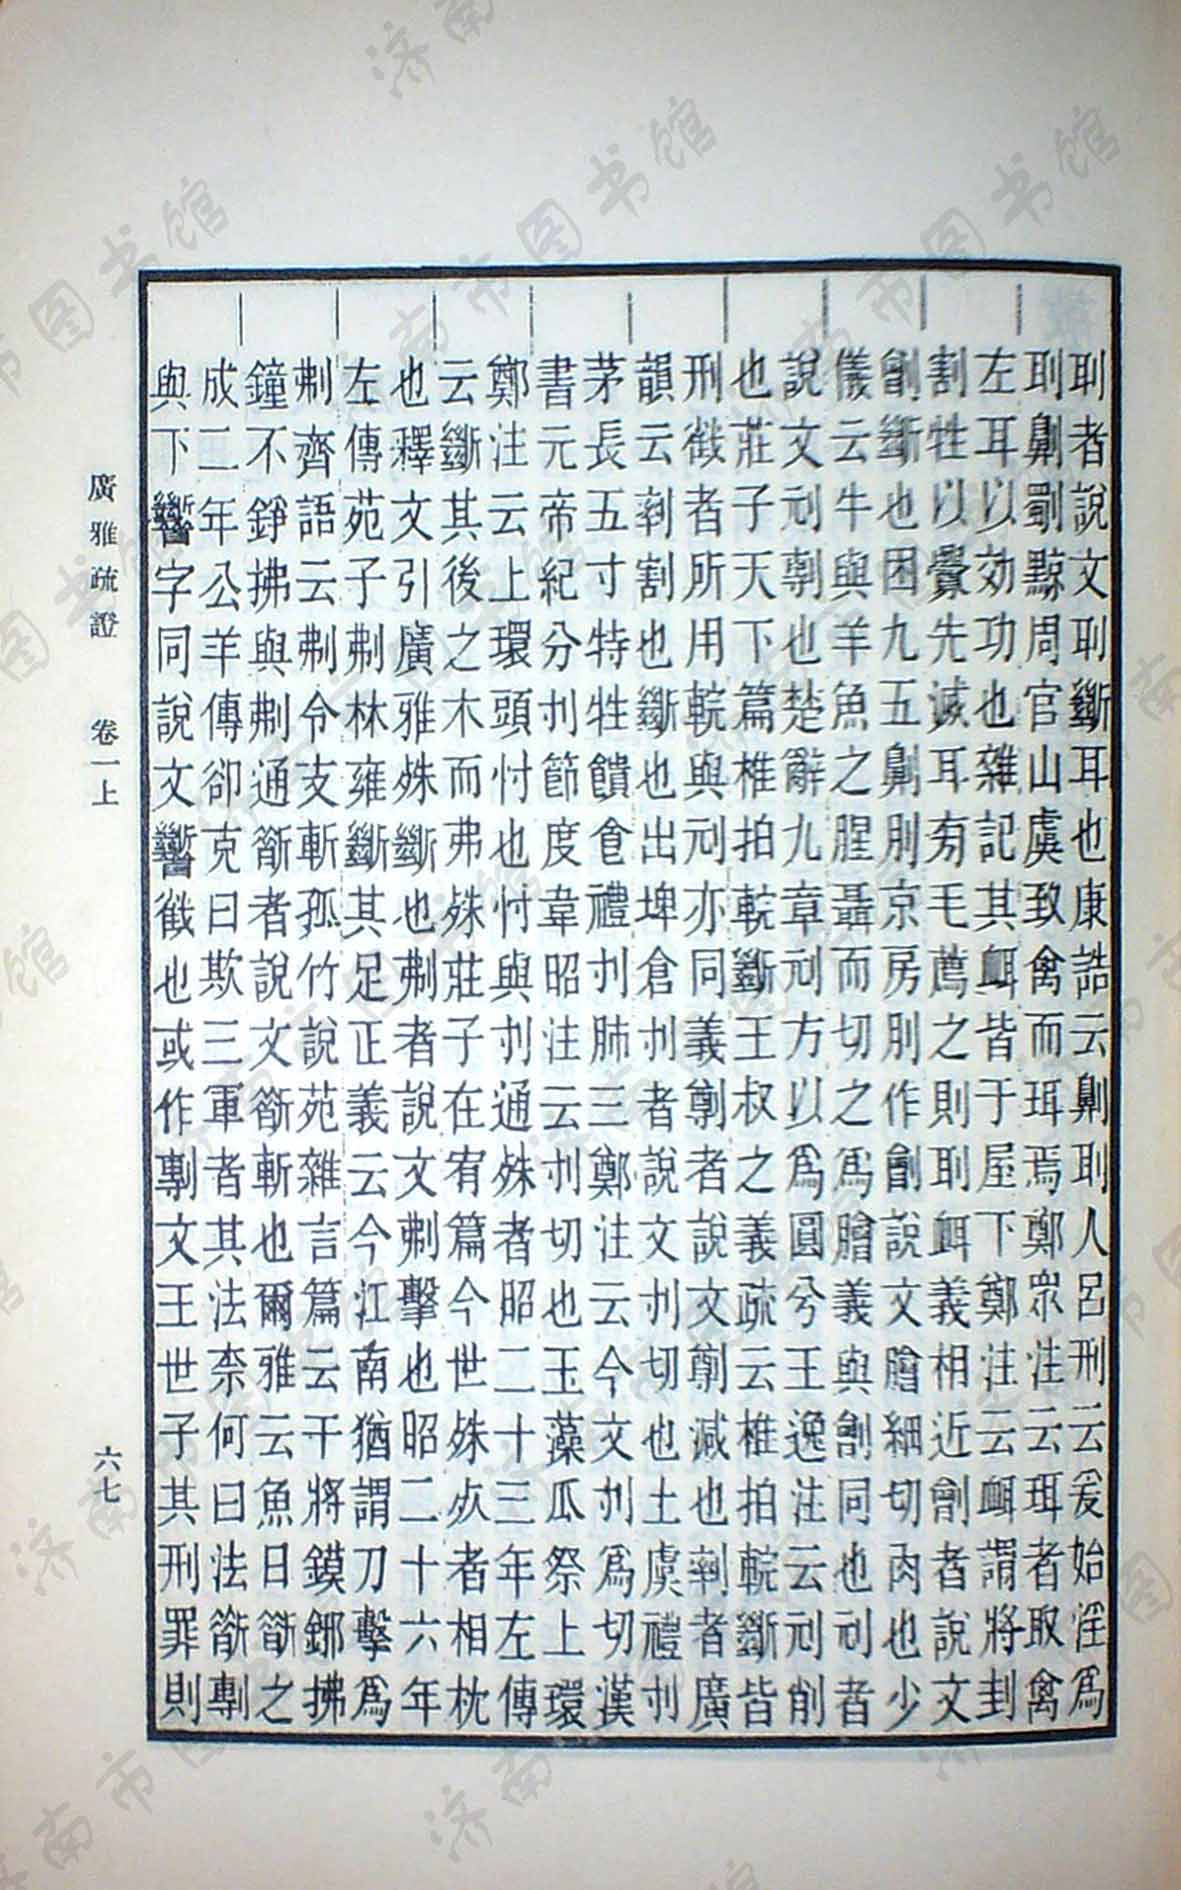 刵者說文刵斷耳也康誥云劓刵人呂刑云爰始淫爲
刵劓劅黥周官山虞致禽而珥焉鄭眾注云珥者取禽
左耳以効功也雜記其衈皆于屋下鄭注云衈謂將刲
割牲以釁先滅耳旁毛薦之則刵衈義相近劊者說文
劊斷也困九五劓刖京房刖作劊說文膾細切肉也少
儀云牛與羊魚之腥聶而切之爲膾義與劊同也刓者
說文刓剸也楚辭九章刓方以爲圓兮王逸注云刓削
也莊子天下篇椎拍輐斷王叔之義疏云椎拍輐斷皆
刑截者所用輐與刓亦同義者說文減也者廣
韻云割也斷也出埤倉刌者說文刌切也士虞禮刌
茅長五寸特牲饋食禮刌肺三鄭注云今文刌爲切漢
書元帝紀分刌節度韋昭注云刌切也玉藻瓜祭上環
鄭注云上環頭忖也忖與刌通殊者昭二十三年左傳
云斷其後之木而弗殊莊子在宥篇今世殊死者相枕
也釋文引廣雅殊斷也刜者說文刜擊也昭二十六年
左傳苑子刜林雍斷其足正義云今江南猶謂刀擊爲
刜齊語云刜令支斬孤竹說苑雜言篇云干將鏌鋣拂
鐘不錚拂與刜通斮者說文斮斬也爾雅云魚曰斮之
成二年公羊傳卻克曰欺三軍者其法柰何曰法斮剸
與下字同說文截也或作剸文王世子其刑罪則
廣雅疏證 卷一上 六七
济南市图书馆